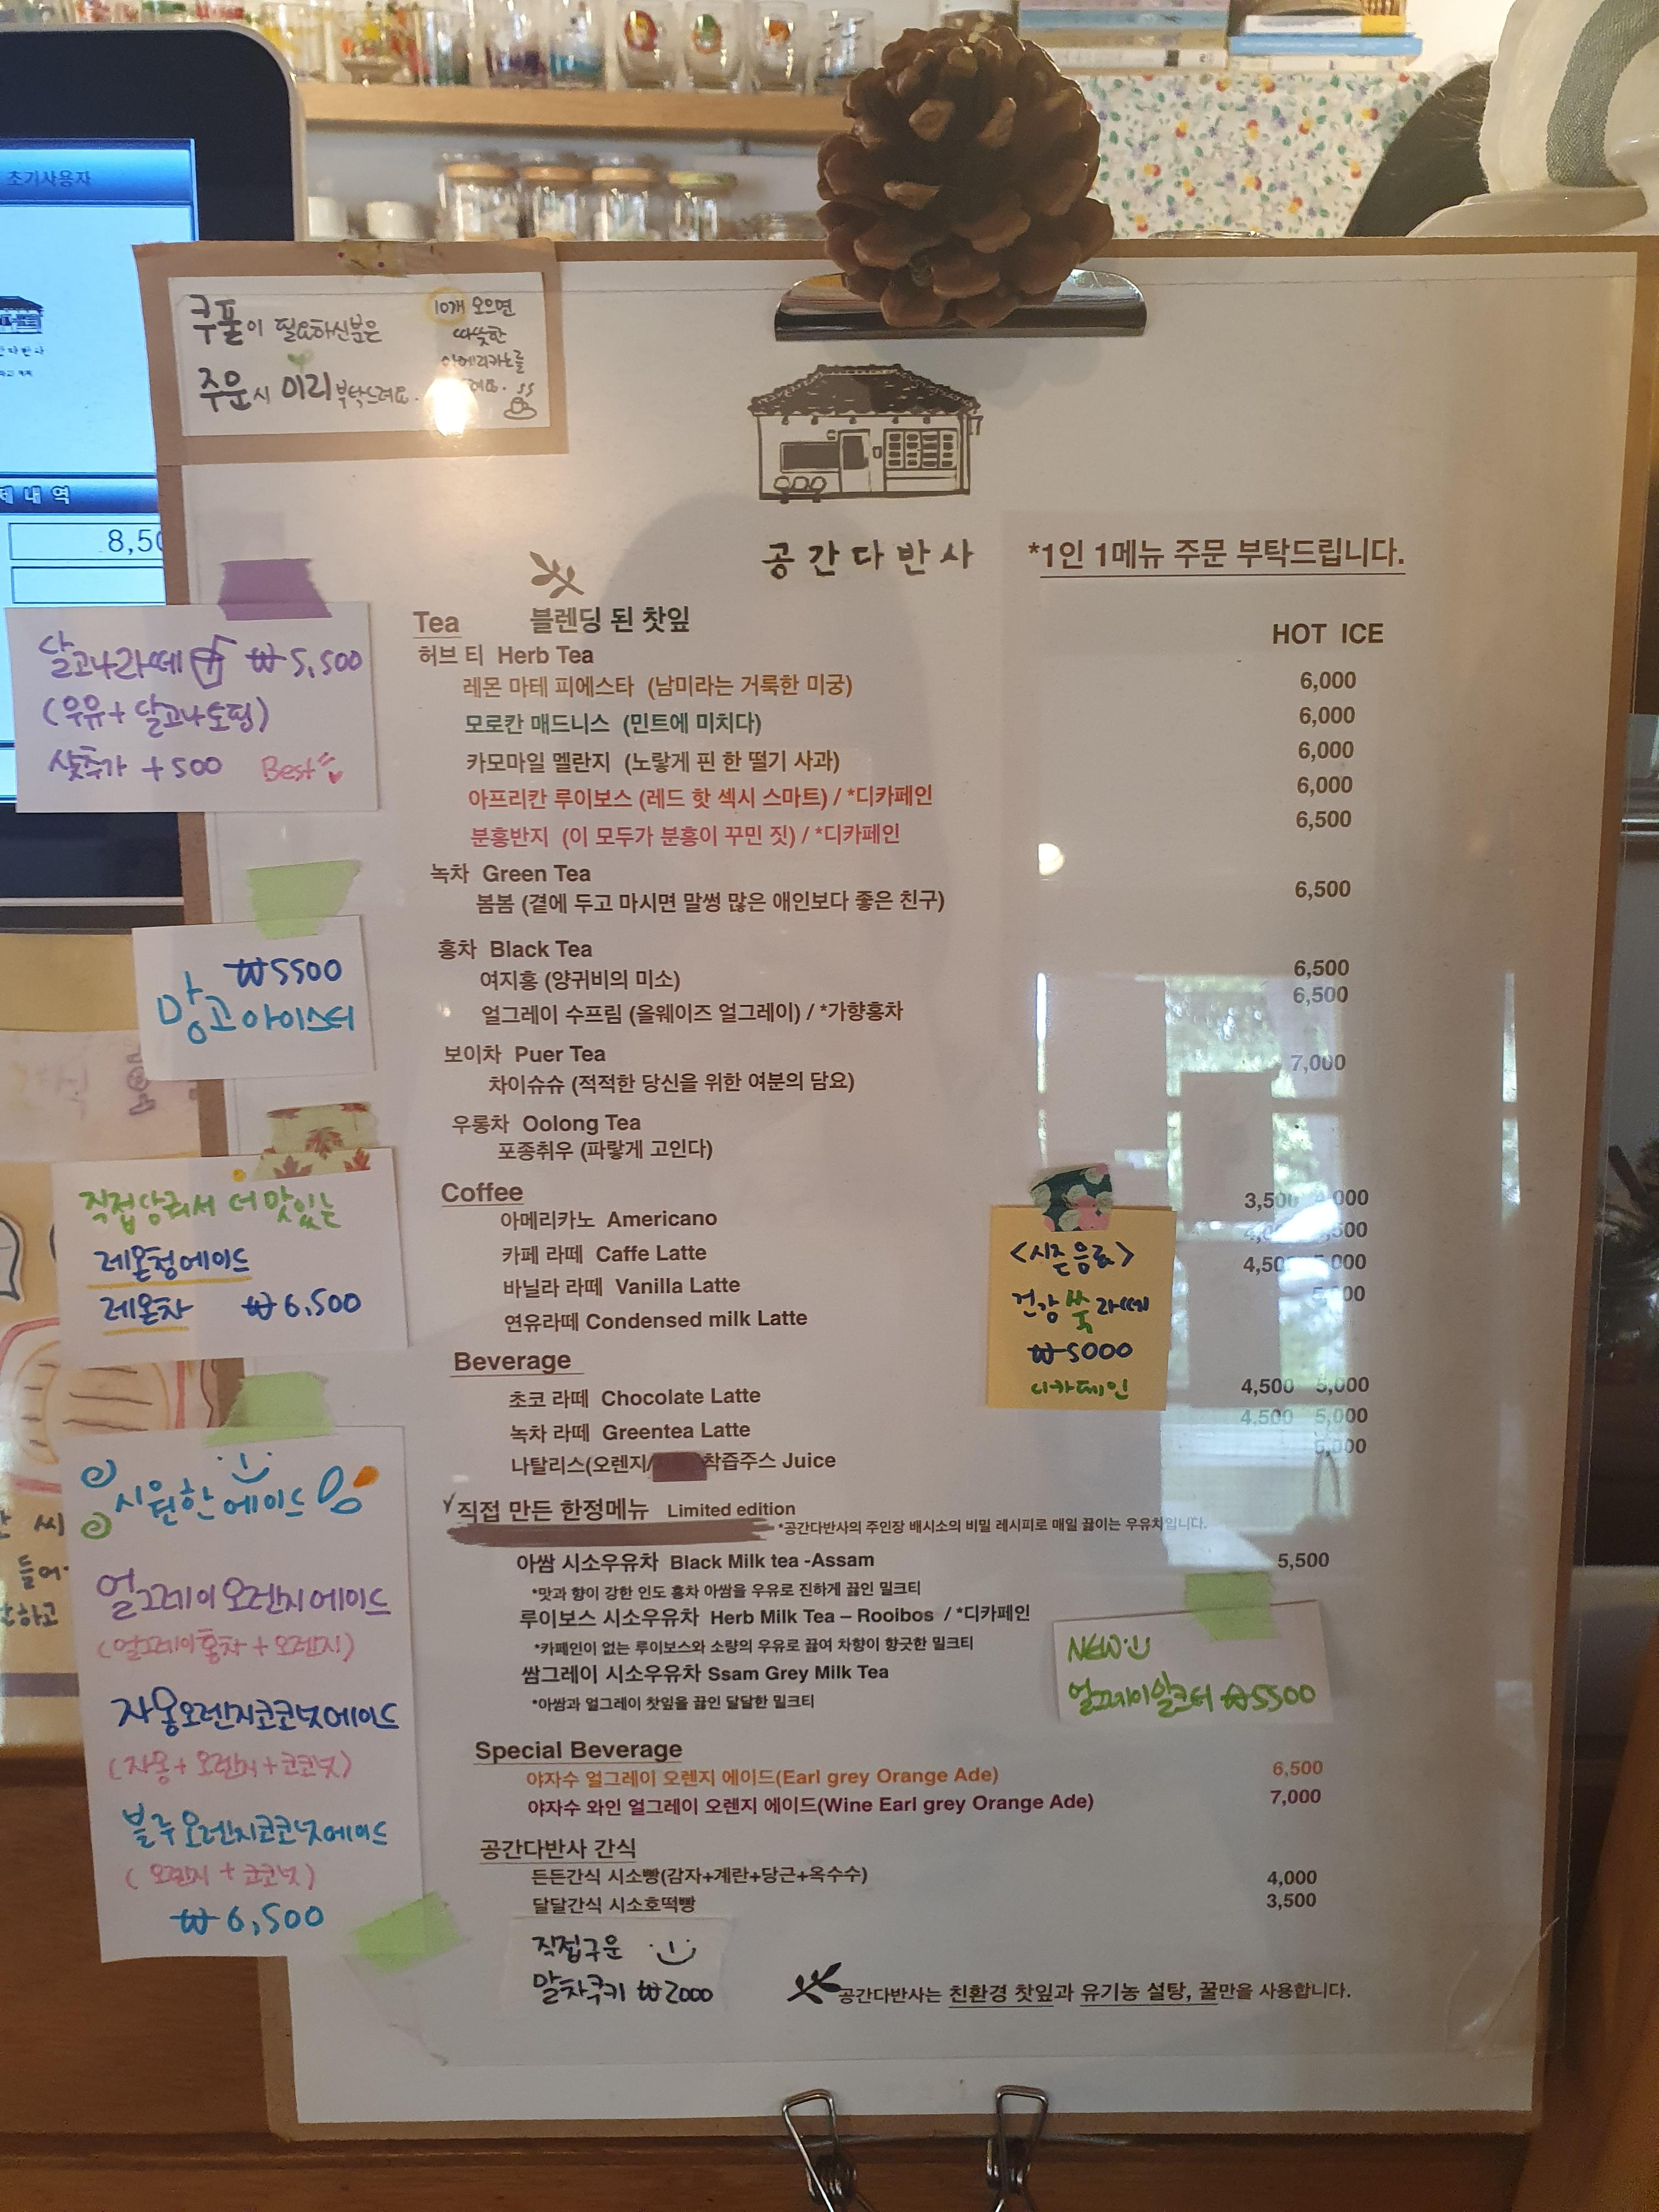 초기사용자
8,50
쿠폰이 필요하신분은
주문시 미리 부탁드려요.
10개 모으면
따뜻한
아메리카노를
공간다반사
*1인 1메뉴 주문 부탁드립니다.
Tea 블렌딩 된 찻잎
HOT ICE
허브 티 Herb Tea
레몬 마테 피에스타 (남미라는 거룩한 미궁) 6,000
모로칸 매드니스 (민트에 미치다) 6,000
카모마일 멜란지 (노랗게 핀 한 떨기 사과) 6,000
아프리칸 루이보스 (레드 핫 섹시 스마트) / *디카페인 6,000
분홍반지 (이 모두가 분홍이 꾸민 짓) / *디카페인 6,500
녹차 Green Tea
봄봄 (곁에 두고 마시면 말썽 많은 애인보다 좋은 친구) 6,500
홍차 Black Tea
여지홍 (양귀비의 미소) 6,500
얼그레이 수프림 (올웨이즈 얼그레이) / *가향홍차 6,500
보이차 Puer Tea
차이슈슈 (적적한 당신을 위한 여분의 담요) 7,000
우롱차 Oolong Tea
포종취우 (파랗게 고인다)
Coffee
아메리카노 Americano 3,500 4,000
카페 라떼 Caffe Latte
바닐라 라떼 Vanilla Latte 4,500 5,000
연유라떼 Condensed milk Latte 5,000
Beverage
초코 라떼 Chocolate Latte 4,500 5,000
녹차 라떼 Greentea Latte 4,500 5,000
나탈리스(오렌지/ 착즙주스 Juice 6,000
직접 만든 한정메뉴 Limited edition
*공간다반사의 주인장 배시소의 비밀 레시피로 매일 끓이는 우유차입니다.
아쌈 시소우유차 Black Milk tea -Assam 5,500
*맛과 향이 강한 인도 홍차 아쌈을 우유로 진하게 끓인 밀크티
루이보스 시소우유차 Herb Milk Tea – Rooibos / *디카페인
*카페인이 없는 루이보스와 소량의 우유로 끓여 차향이 향긋한 밀크티
쌈그레이 시소우유차 Ssam Grey Milk Tea
*아쌈과 얼그레이 찻잎을 끓인 달달한 밀크티
Special Beverage
야자수 얼그레이 오렌지 에이드(Earl grey Orange Ade) 6,500
야자수 와인 얼그레이 오렌지 에이드(Wine Earl grey Orange Ade) 7,000
공간다반사 간식
든든간식 시소빵(감자+계란+당근+옥수수) 4,000
달달간식 시소호떡빵 3,500
직접구운
말차쿠키 ₩2000
공간다반사는 친환경 찻잎과 유기농 설탕, 꿀만을 사용합니다.
달고나라떼 ₩5,500
(우유+달고나토핑)
샷추가 +500 Best
₩5500
망고아이스티
직접담궈서 더 맛있는
레몬청에이드
레몬차 ₩6,500
시원한에이드
얼그레이오렌지에이드
(얼그레이홍차+오렌지)
자몽오렌지코코넛에이드
(자몽+오렌지+코코넛)
블루오렌지코코넛에이드
(오렌지+코코넛)
₩6,500
<시즌음료>
건강쑥라떼
₩5000
디카페인
NEW
얼그레이밀크티 ₩5500